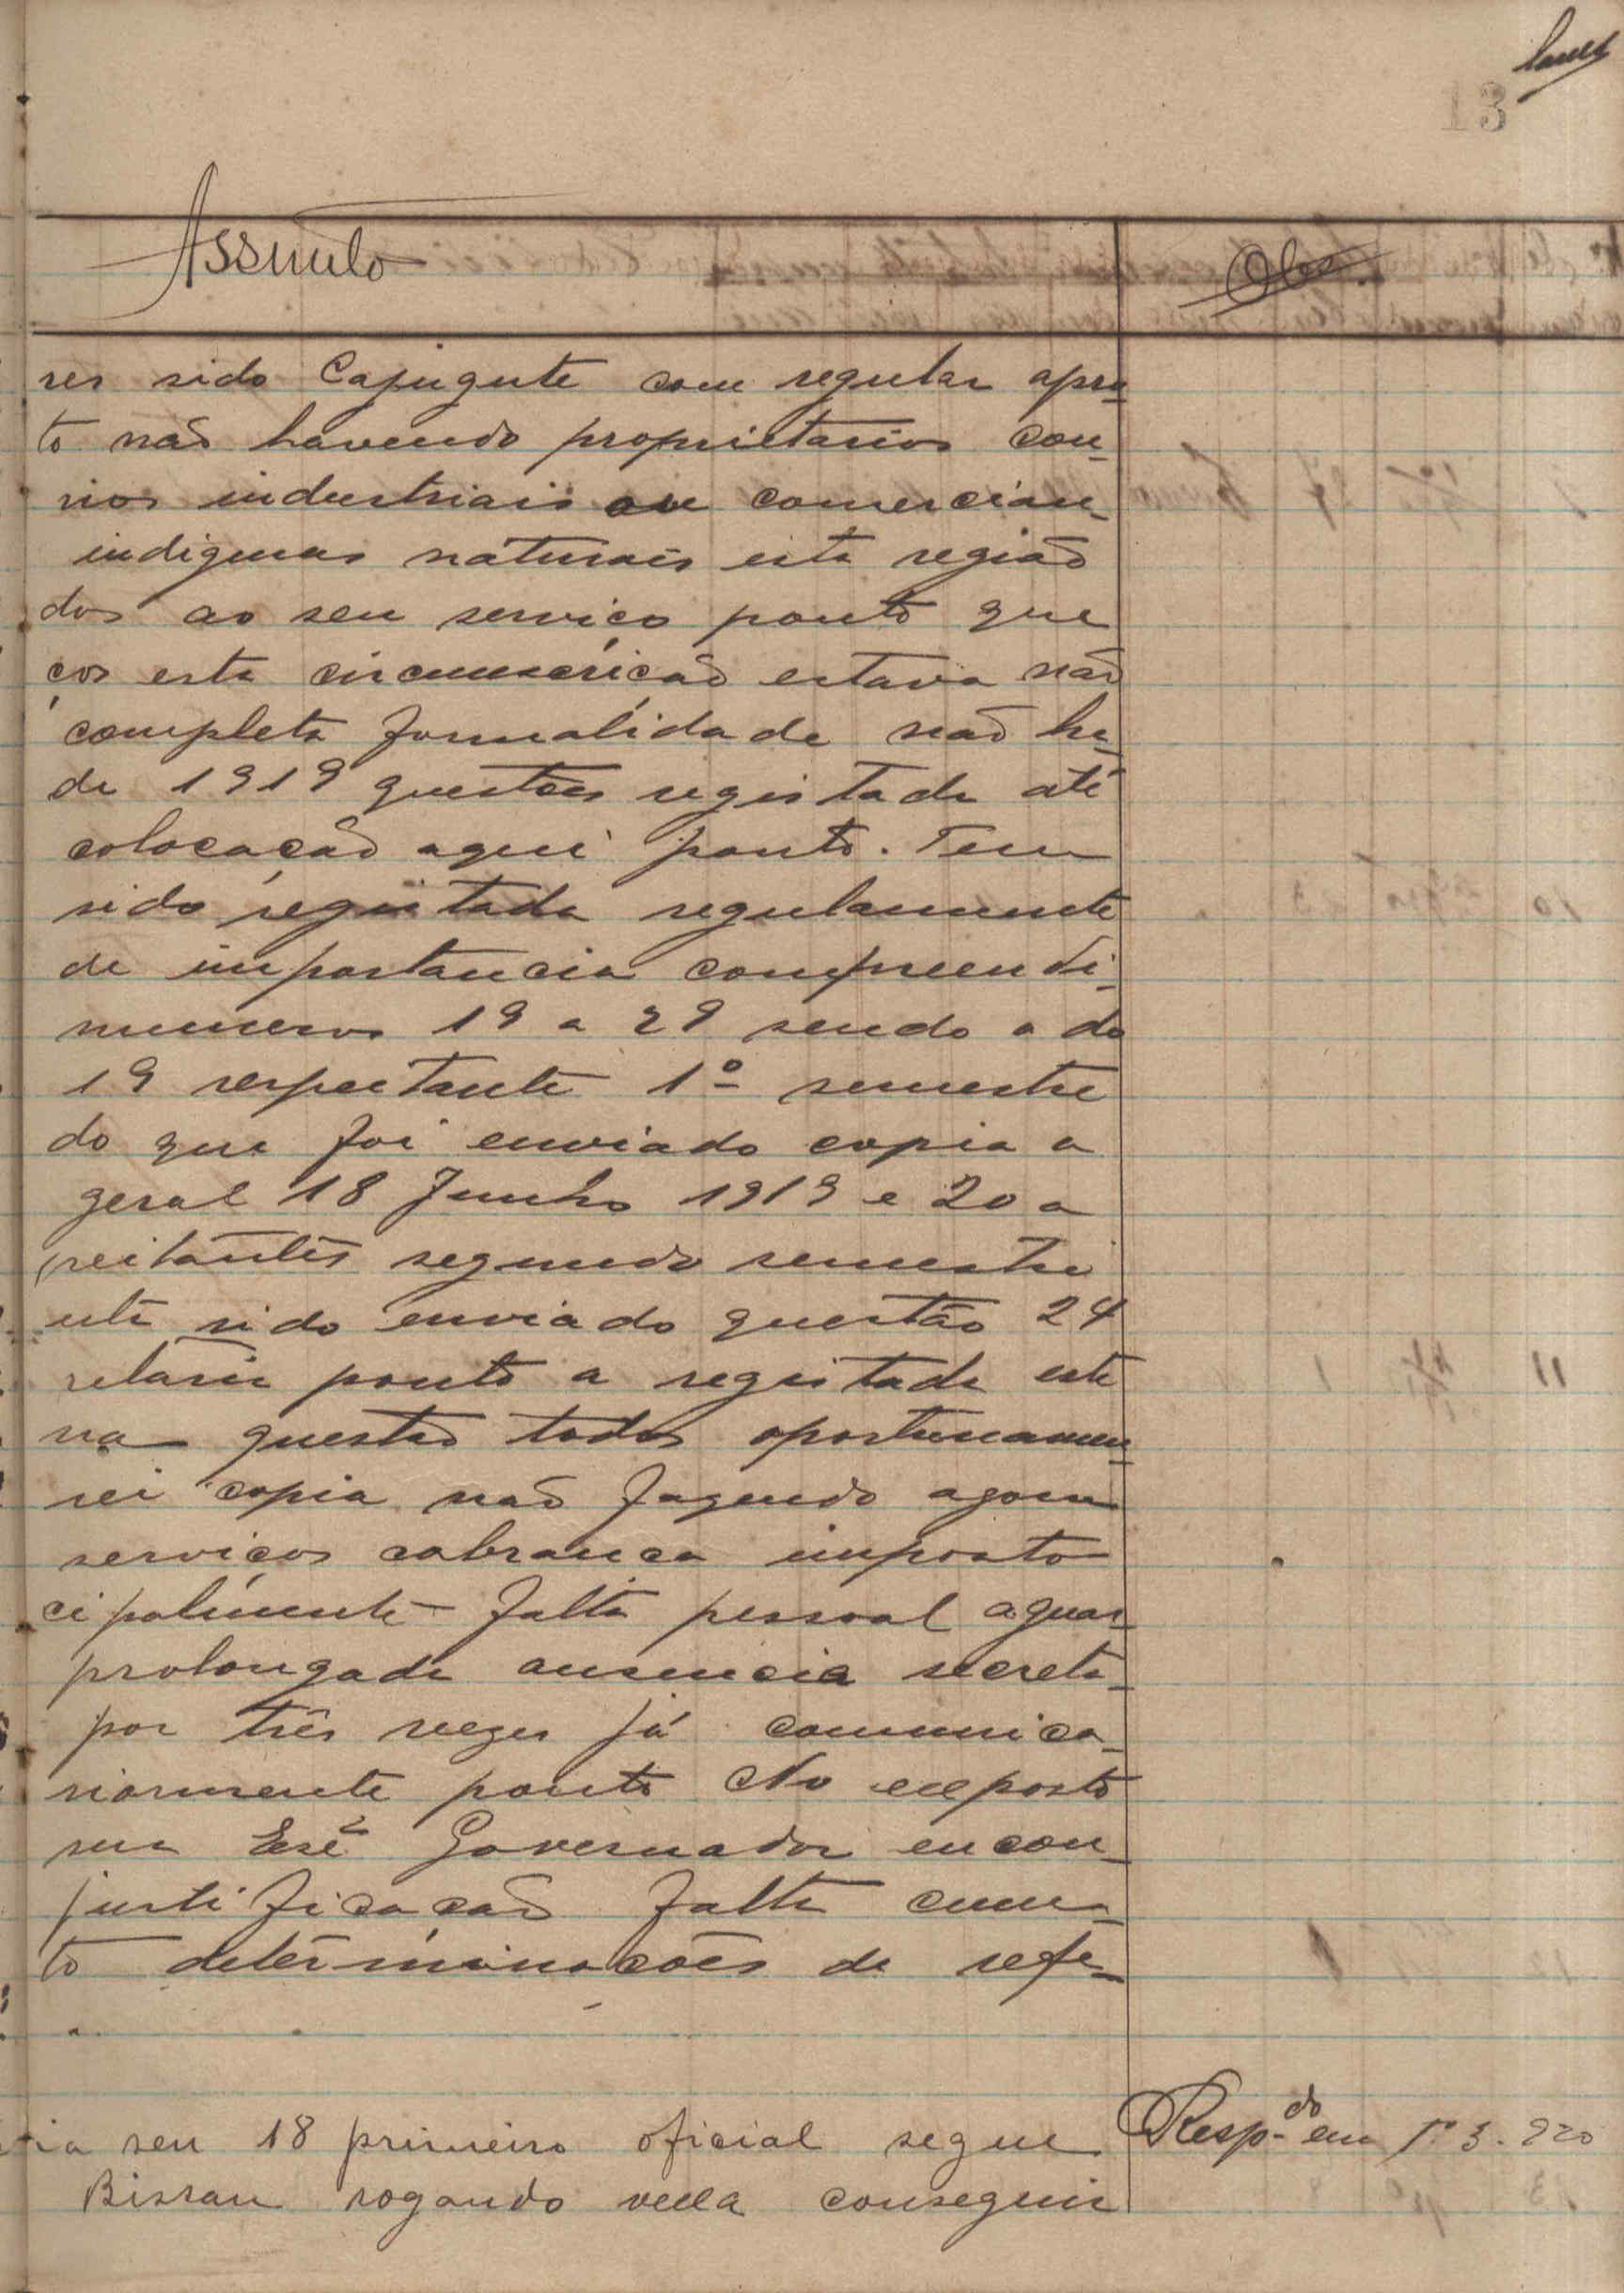 13
Assunto
Obs.
ser sido Cajugute com regular apro-
to não havendo proprietarios con-
rios industriais ou comercian-
indigenas naturais esta região
dos ao seu serviço ponto que
ços esta circunscrição estava não
completa formalidade não ha-
de 1919 questões registada até
colocação aqui ponto. Tem
sido registada regularmente
de importancia compreendi-
numeros 19 a 29 sendo a do
19 respeitante 1º semestre
do que foi enviado copia a
geral 18 Junho 1919 e 20 a
peitantes segundo semestre
nte sido enviado questão 24
retaria ponto a registada este
na questão todos oportunamen-
rei copia não fazendo agora
serviços cobrança imposto
cipalmente falta pessoal aguar-
prolongada ausencia secreta-
por três vezes já comunica-
riormente ponto No exposto
sua Exª Governador encon-
justificação falta cum-
to determinações de refe-
ia seu 18 primeiro oficial segue
Resp.do em 1º 3. 920
Bissau rogando vexa conseguir